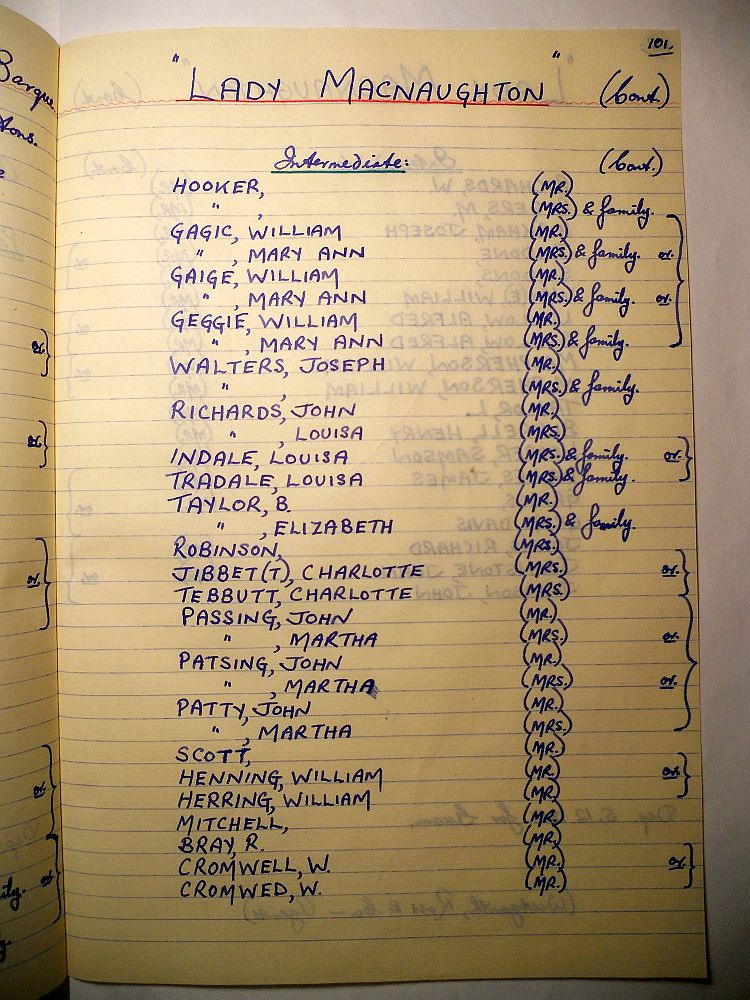 Barque
tons.
or.
or.
or.
or.
or.
101.
"LADY MACNAUGHTON" (Cont.)
Intermediate: (Cont.)
HOOKER, (MR.)
" , (MRS.) & family.
GAGIC, WILLIAM (MR.)
" , MARY ANN (MRS.) & family. or.
GAIGE, WILLIAM (MR.)
" , MARY ANN (MRS.) & family. or.
GEGGIE, WILLIAM (MR.)
" , MARY ANN (MRS.) & family.
WALTERS, JOSEPH (MR.)
" , (MRS.) & family.
RICHARDS, JOHN (MR.)
" , LOUISA (MRS.)
INDALE, LOUISA (MRS.) & family. or.
TRADALE, LOUISA (MRS.) & family.
TAYLOR, B. (MR.)
" , ELIZABETH (MRS.) & family.
ROBINSON, (MRS.)
JIBBET(T), CHARLOTTE (MRS.) or.
TEBBUTT, CHARLOTTE (MRS.)
PASSING, JOHN (MR.)
" , MARTHA (MRS.) or.
PATSING, JOHN (MR.)
" , MARTHA (MRS.) or.
PATTY, JOHN (MR.)
" , MARTHA (MRS.)
SCOTT, (MR.)
HENNING, WILLIAM (MR.) or.
HERRING, WILLIAM (MR.)
MITCHELL, (MR.)
BRAY, R. (MR.)
CROMWELL, W. (MR.) or.
CROMWED, W. (MR.)